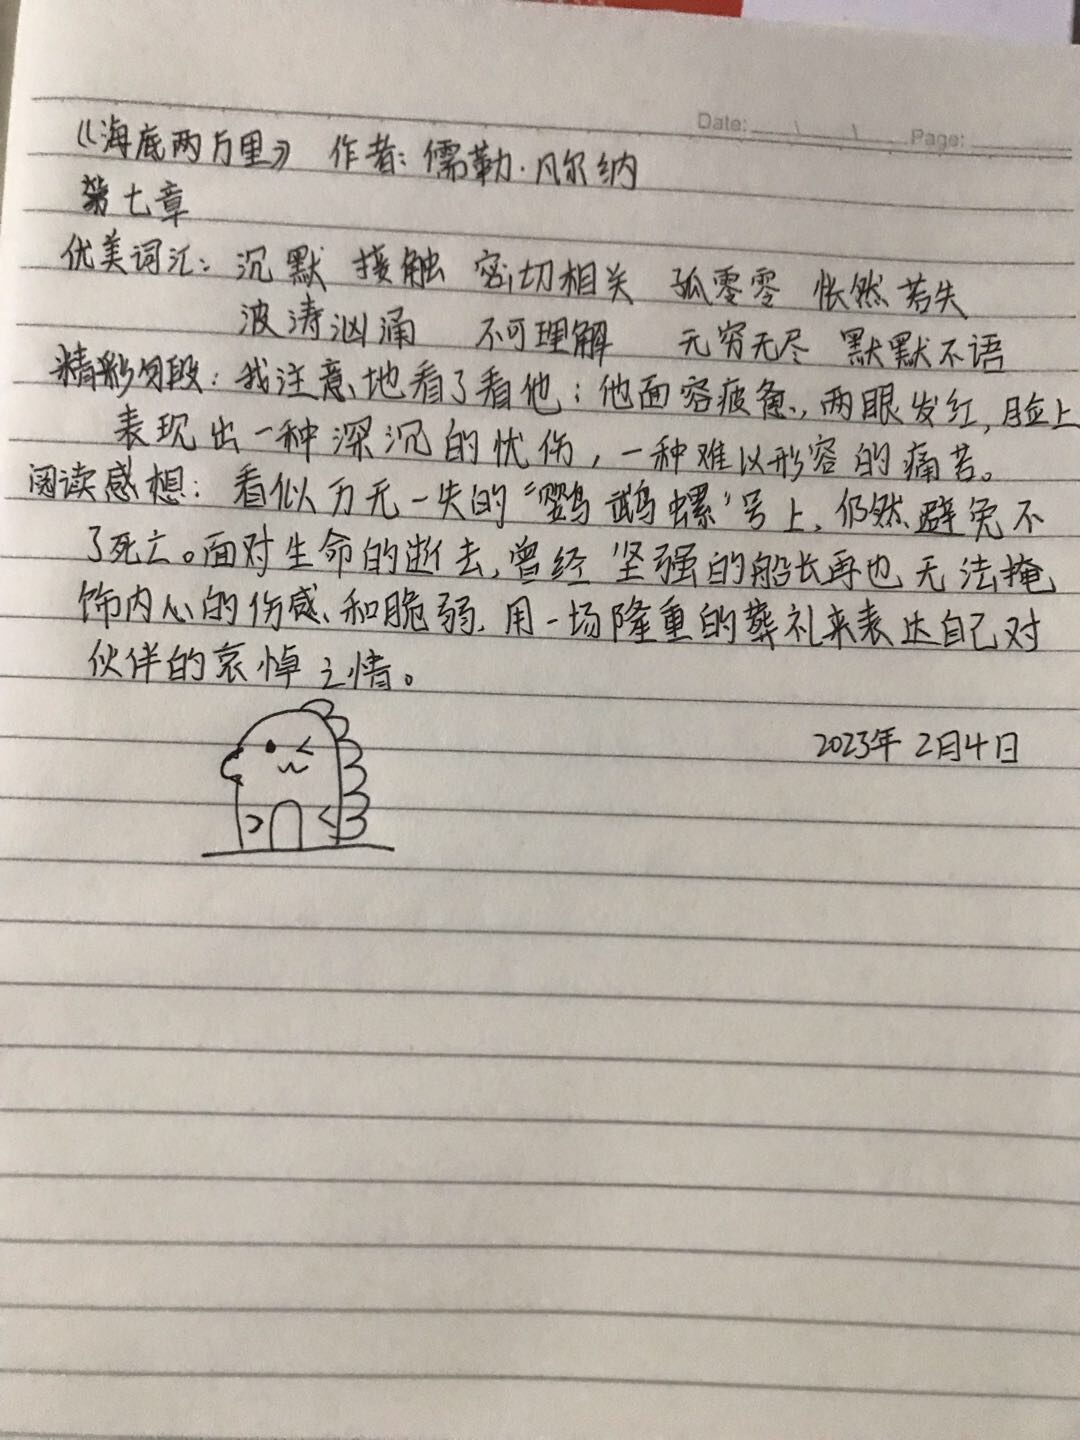 Date: \ \ Page:
《海底两万里》 作者：儒勒·凡尔纳
第七章
优美词汇：沉默 接触 密切相关 孤零零 怅然若失
波涛汹涌 不可理解 无穷无尽 默默不语
精彩句段：我注意地看了看他：他面容疲惫，两眼发红，脸上
表现出一种深沉的忧伤，一种难以形容的痛苦。
阅读感想：看似万无一失的“鹦鹉螺”号上，仍然避免不
了死亡。面对生命的逝去，曾经坚强的船长再也无法掩
饰内心的伤感、和脆弱，用一场隆重的葬礼来表达自己对
伙伴的哀悼之情。
2023年2月4日